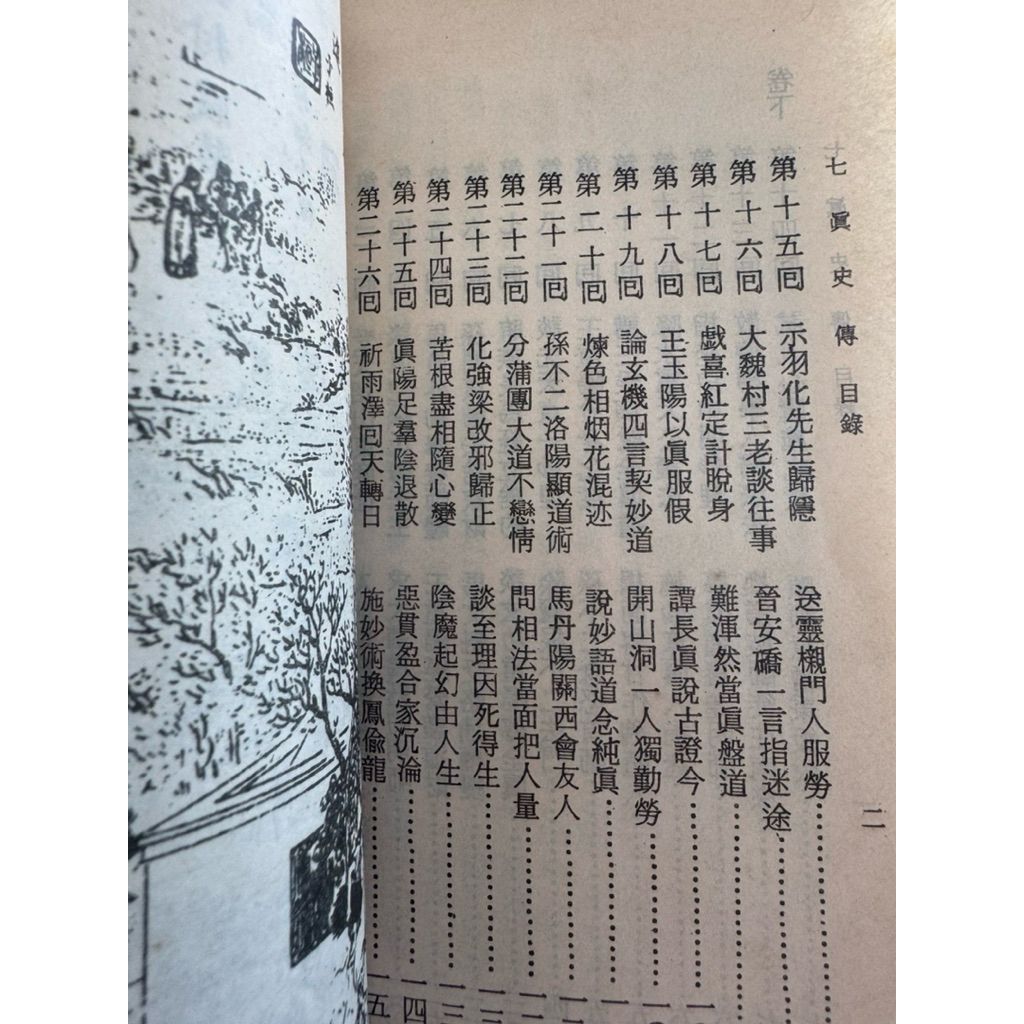 七眞史傳 目錄
二
第十五囘 示羽化先生歸隱 送靈欬門人服勞
第十六囘 大魏村三老談往事 晉安礄一言指迷途
第十七囘 戲喜紅定計脫身 難渾然當眞盤道
第十八囘 王玉陽以眞服假 譚長眞說古證今
第十九囘 論玄機四言契妙道 開山洞一人獨勤勞
第二十囘 煉色相烟花混迹 說妙語道念純眞
第二十一囘 孫不二洛陽顯道術 馬丹陽關西會友人
第二十二囘 分蒲團大道不戀情 問相法當面把人量
第二十三囘 化強梁改邪歸正 談至理因死得生
第二十四囘 苦根盡相隨心變 陰魔起幻由人生
第二十五囘 眞陽足羣陰退散 惡貫盈合家沉淪
第二十六囘 祈雨澤囘天轉日 施妙術換鳳偸龍